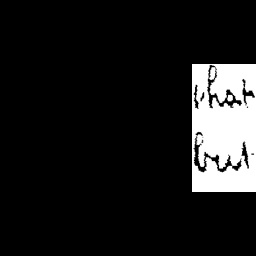 that
but